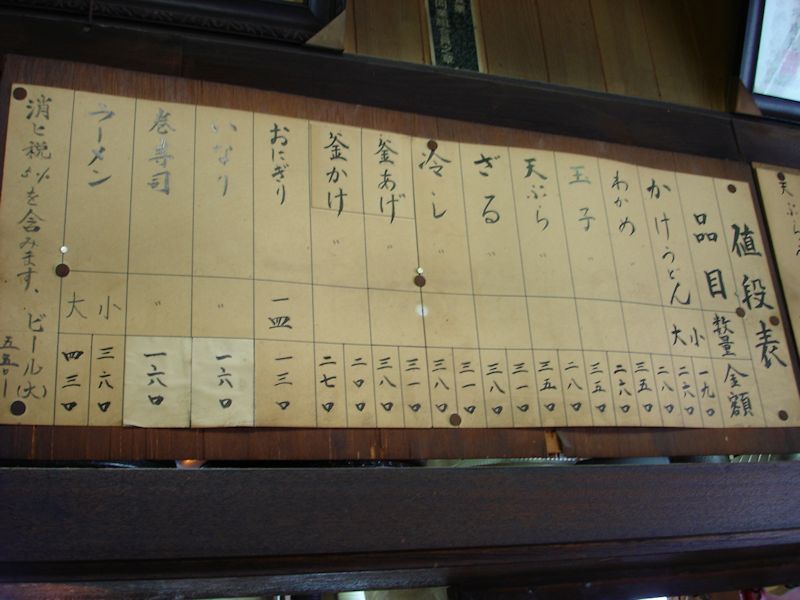 値段表
品目 数量 金額
かけうどん 小 一九〇
大 二六〇
わかめ 〃 二八〇
三五〇
玉子 〃 二六〇
三五〇
天ぷら 〃 二八〇
三五〇
ざる 〃 三一〇
三八〇
冷し 〃 三一〇
三八〇
釜あげ 〃 三一〇
三八〇
釜かけ 〃 二〇〇
二七〇
おにぎり 一皿 一三〇
いなり 〃 一六〇
巻寿司 〃 一六〇
ラーメン 小 三六〇
大 四三〇
消ヒ税5%を含みます、ビール(大)
五五〇ー
天ぷら